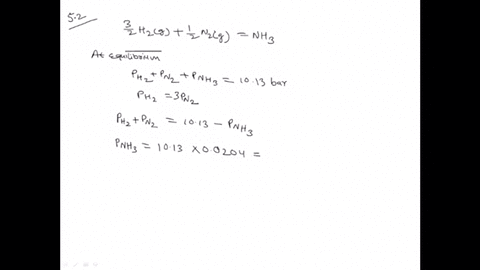 5.2
3/2 H₂(g) + 1/2 N₂(g) = NH₃
At equilibrium
P_H₂ + P_N₂ + P_NH₃ = 10.13 bar
P_H₂ = 3P_N₂
P_H₂ + P_N₂ = 10.13 - P_NH₃
P_NH₃ = 10.13 × 0.0204 =